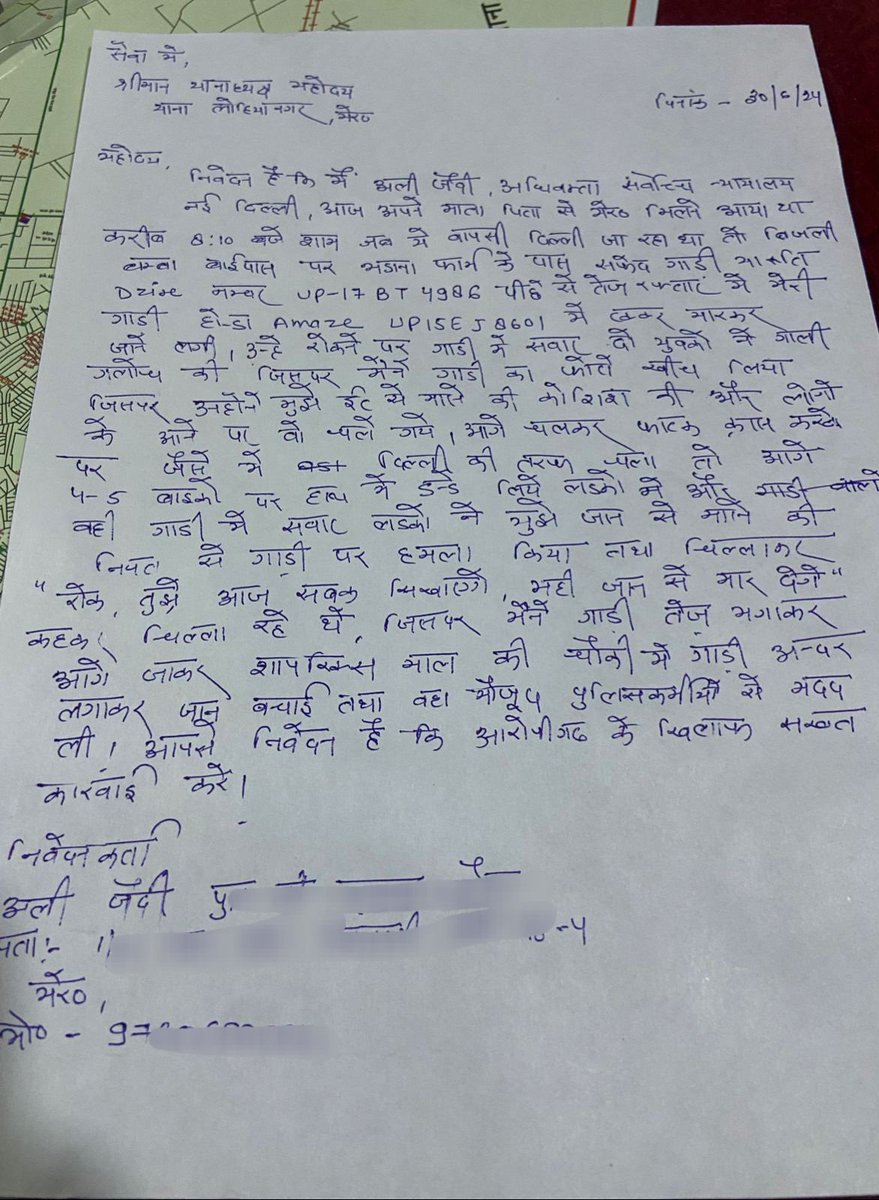 सेवा में,
श्रीमान थानाध्यक्ष महोदय
थाना लोहियानगर, मेरठ
दिनांक - 30/6/24
महोदय,
निवेदन है कि मैं अली जैदी, अधिवक्ता सर्वोच्च न्यायालय
नई दिल्ली, आज अपने माता पिता से मेरठ मिलने आया था
करीब 8:10 बजे शाम जब मैं वापसी दिल्ली जा रहा था तो बिजली
बम्बा बाईपास पर भडाना फार्म के पास सफेद गाडी मारूति
Dzire नम्बर UP-17 BT 4986 पीछे से तेज रफ्तार में मेरी
गाडी होन्डा Amaze UP15EJ8601 में टक्कर मारकर
जाने लगी, उन्हे रोकने पर गाडी में सवार दो युवको ने गाली
गलोच्च की जिसपर मैंने गाडी का फोटो खीच लिया
जिसपर उन्होने मुझे ईट से मारने की कोशिश की और लोगो
के आने पर वो चले गये, आगे चलकर फाटक क्रास करने
पर जैसे में दिल्ली की तरफ चला तो आगे
4-5 बाइको पर हाथ में डन्डे लिये लडको ने और गाडी वालो
वही गाडी में सवार लडको ने मुझे जान से मारने की
नियत से गाडी पर हमला किया तथा चिल्लाकर
" रोक, तुझे आज सबक सिखाएगे, यही जान से मार देगे"
कहकर चिल्ला रहे थे, जिसपर मैंने गाडी तेज़ भगाकर
आगे जाकर शापरिक्स माल की चौकी में गाडी अन्दर
लगाकर जान बचाई तथा वहा मौजूद पुलिसकर्मीयो से मदद
ली। आपसे निवेदन है कि आरोपीगढ के खिलाफ सख्त
कारवाई करे।
निवेदनकर्ता
अली जैदी पु
पता:-
-4
मेरठ,
मो० - 97